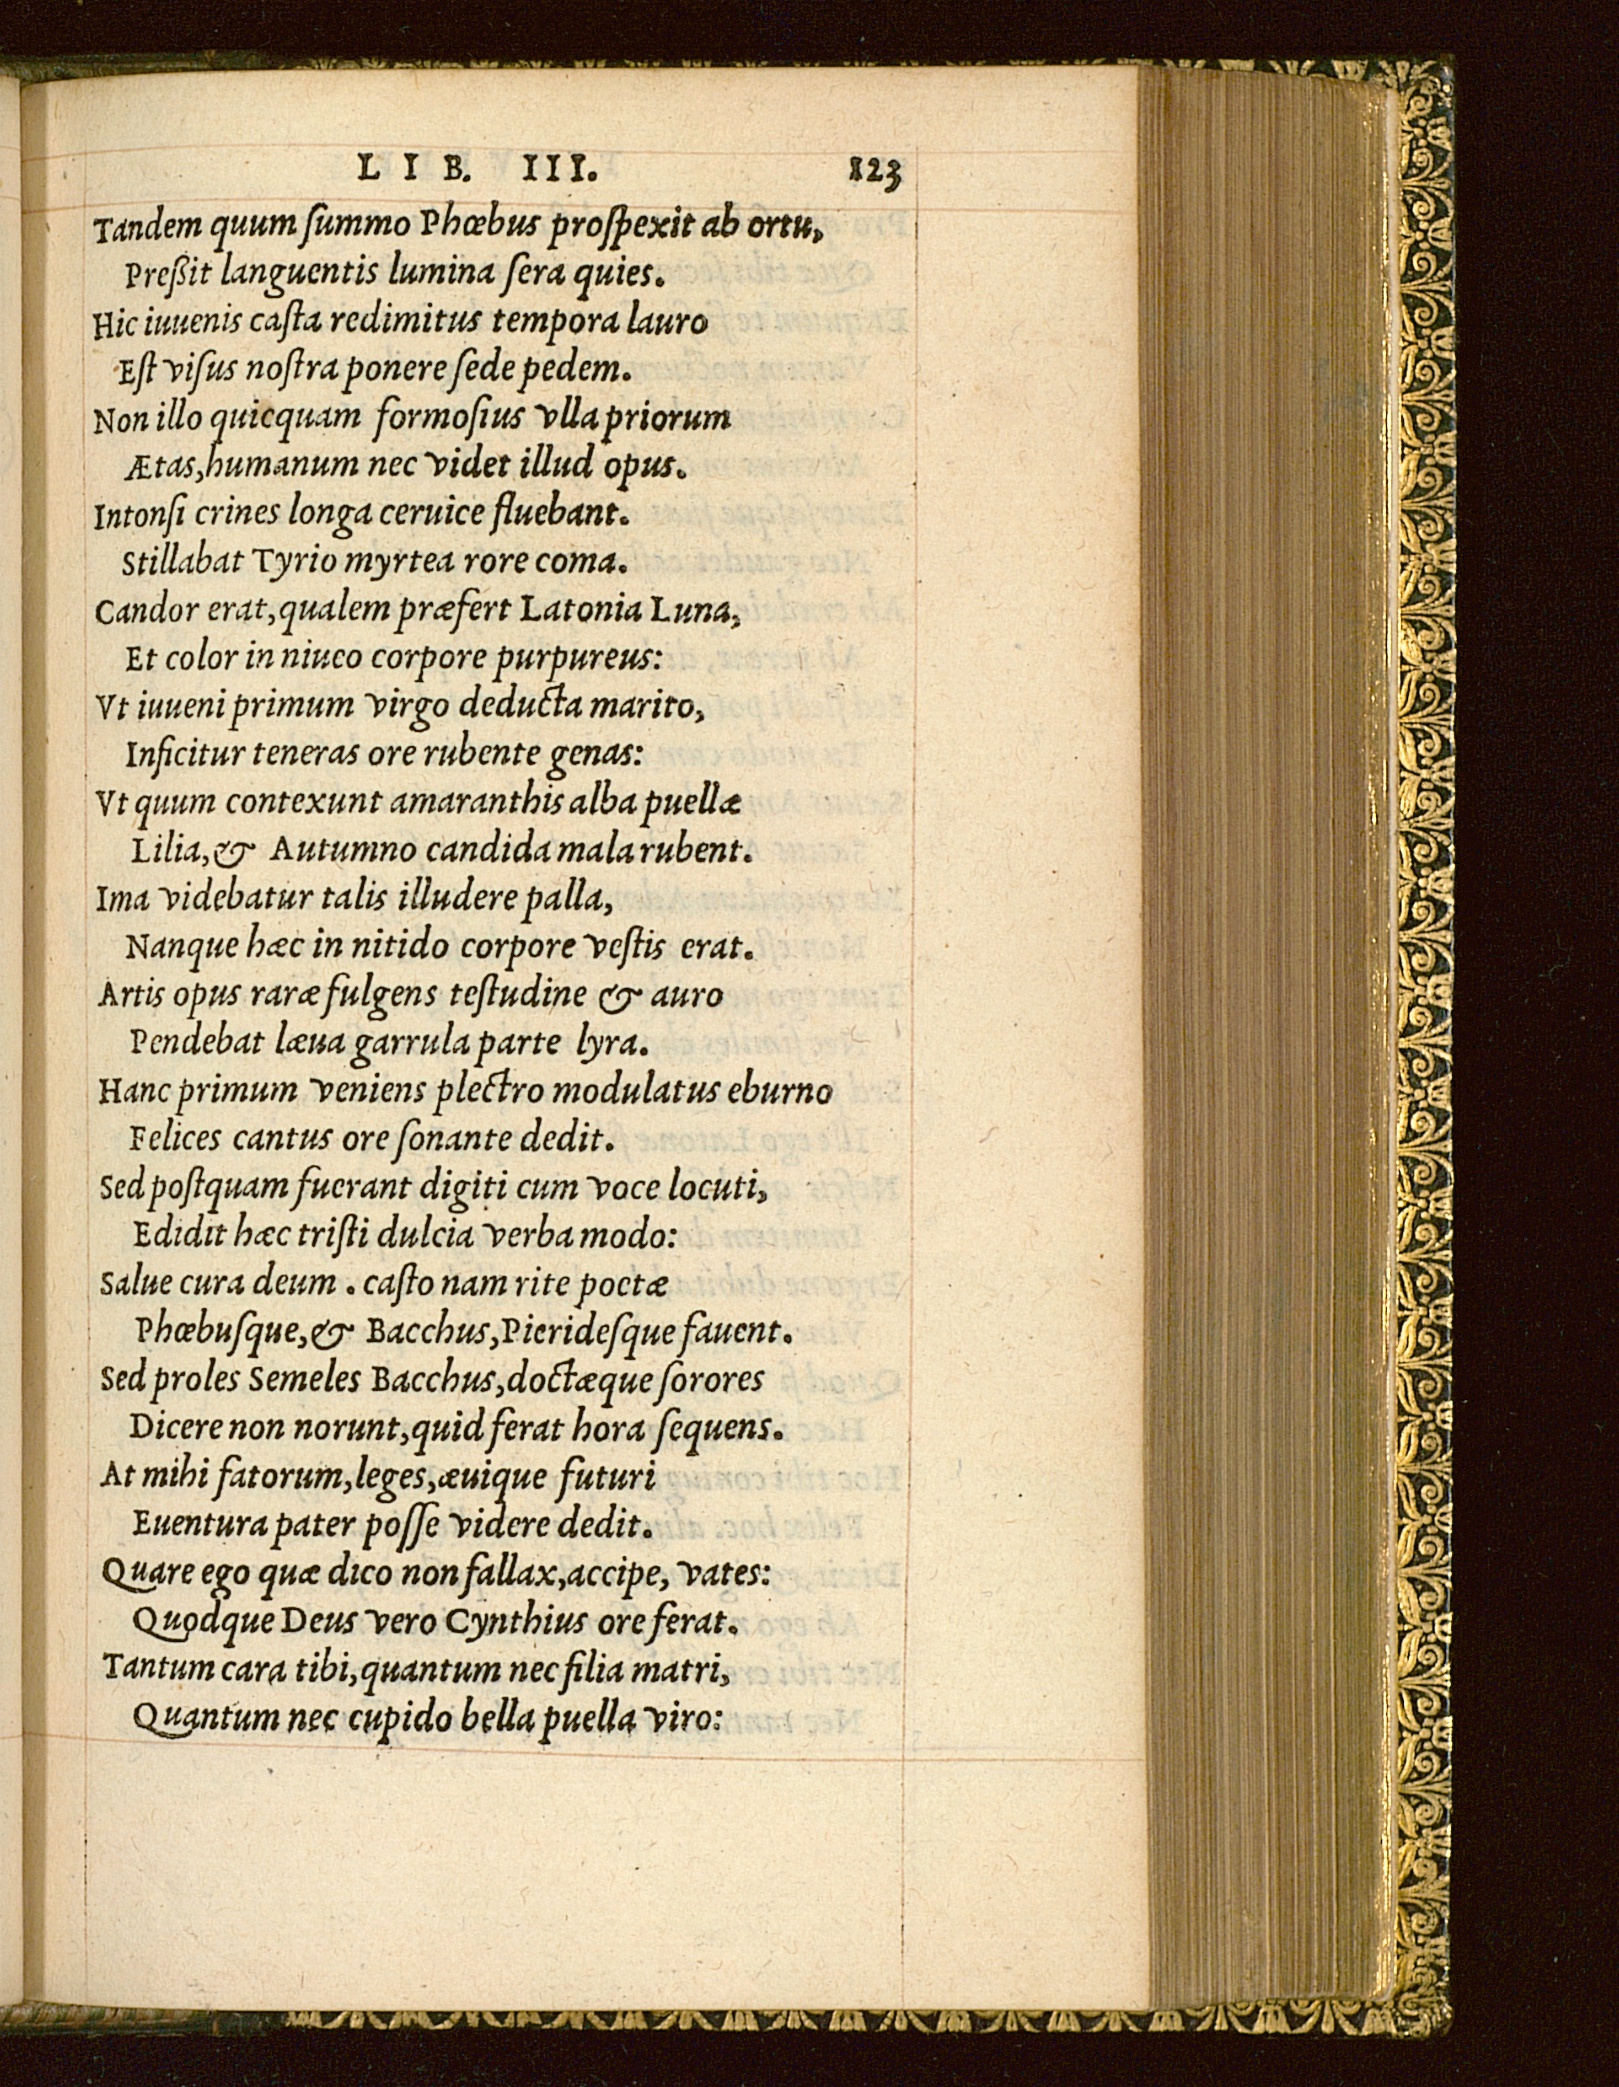 LIB. III. 123
Tandem quum ſummo Phœbus proſpexit ab ortu,
Preßit languentis lumina ſera quies.
Hic iuuenis caſta redimitus tempora lauro
Eſt viſus noſtra ponere ſede pedem.
Non illo quicquam formoſius vlla priorum
Ætas, humanum nec videt illud opus.
Intonſi crines longa ceruice fluebant.
Stillabat Tyrio myrtea rore coma.
Candor erat, qualem præfert Latonia Luna,
Et color in niueo corpore purpureus:
Vt iuueni primum virgo deducta marito,
Inficitur teneras ore rubente genas:
Vt quum contexunt amaranthis alba puellæ
Lilia, & Autumno candida mala rubent.
Ima videbatur talis illudere palla,
Nanque hæc in nitido corpore veſtis erat.
Artis opus raræ fulgens teſtudine & auro
Pendebat læua garrula parte lyra.
Hanc primum veniens plectro modulatus eburno
Felices cantus ore ſonante dedit.
Sed poſtquam fuerant digiti cum voce locuti,
Edidit hæc triſti dulcia verba modo:
Salue cura deum . caſto nam rite poetæ
Phœbuſque, & Bacchus, Pierideſque fauent.
Sed proles Semeles Bacchus, doctæque ſorores
Dicere non norunt, quid ferat hora ſequens.
At mihi fatorum, leges, æuique futuri
Euentura pater poſſe videre dedit.
Quare ego quæ dico non fallax, accipe, vates:
Quodque Deus vero Cynthius ore ferat.
Tantum cara tibi, quantum nec filia matri,
Quantum nec cupido bella puella viro: